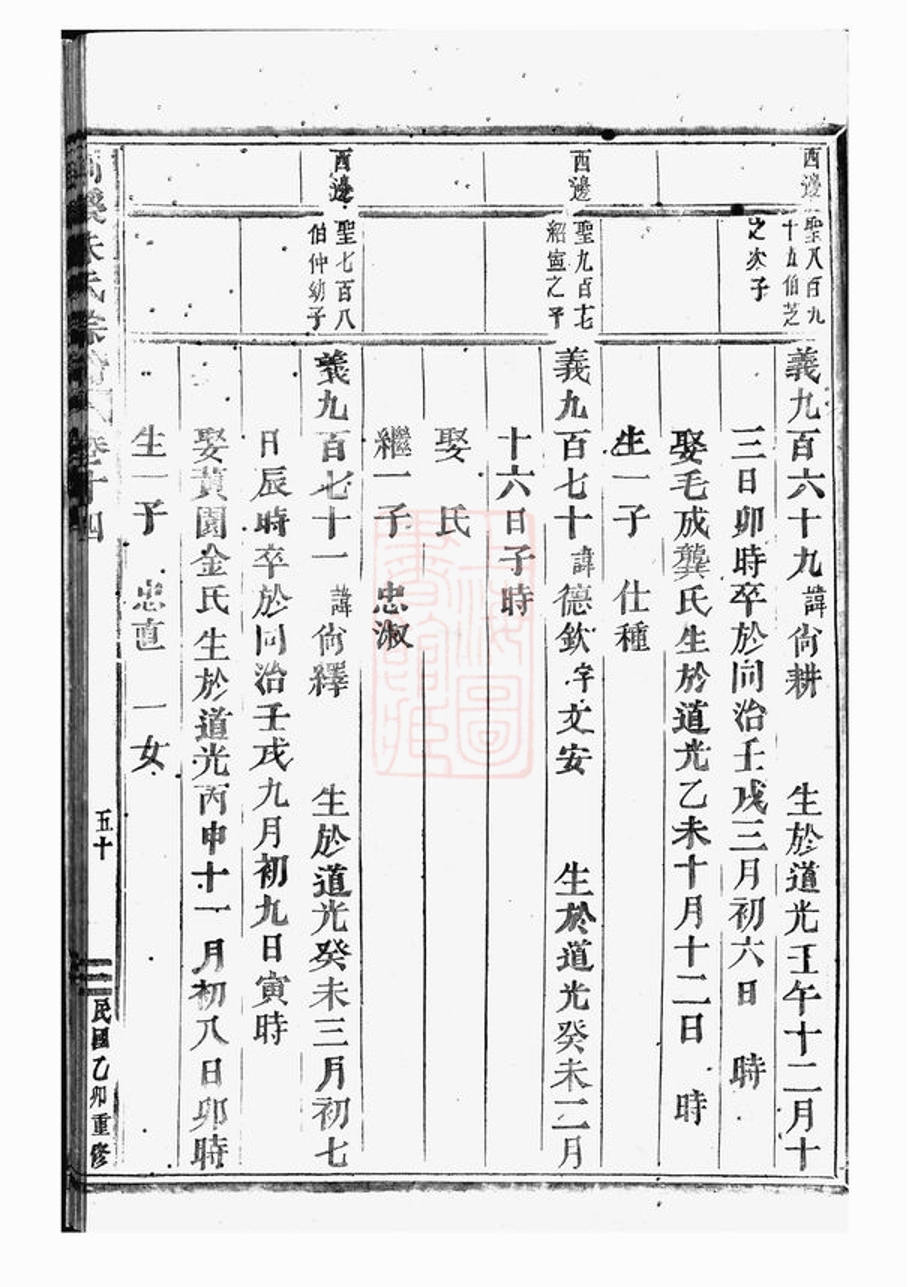 西邊
聖八百九
十五伯芝
之次子
義九百六十九諱尙耕 生於道光壬午十二月十
三日卯時卒於同治壬戌三月初六日 時
娶毛成龔氏生於道光乙未十月十二日 時
生一子 仕種
西邊
聖九百七
紹寍之子
義九百七十諱德欽字文安 生於道光癸未二月
十六日子時
娶 氏
繼一子 忠淑
西邊
聖七百八
伯仲幼子
義九百七十一 諱尙繹 生於道光癸未三月初七
日辰時卒於同治壬戌九月初九日寅時
娶黃園金氏生於道光丙申十一月初八日卯時
生一子 忠直 一女
朱氏宗 卷十四
五十
民國乙卯重修